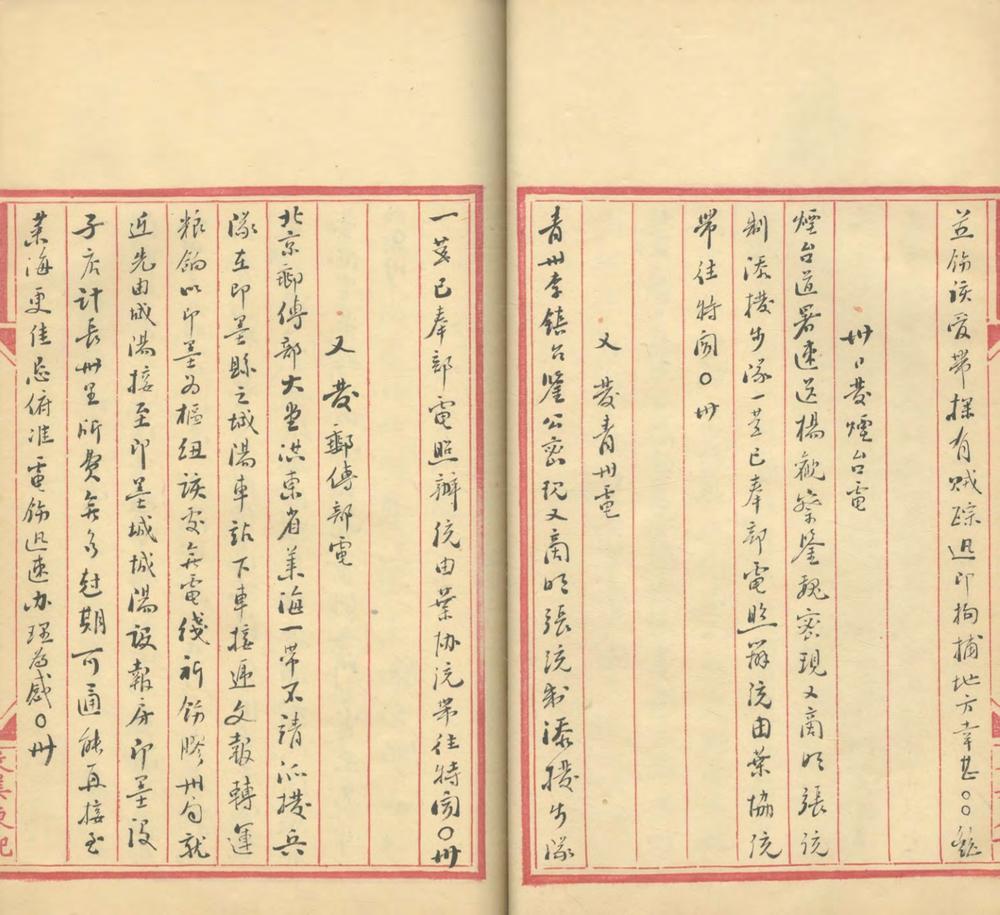 並飭該爱帶探有贼踪迅即拘捕地方幸甚〇〇
卅日發煙台電
煙台道署速送楊觀察鑒魏密現又商明張統
制添撥步隊一營已奉部電照辦統由葉協統
帶往特聞〇卅
又發青州電
青州李鎮台鑒公密現又商明張統制添撥步隊
一營已奉部電照辦統由葉協統帶往特聞〇卅
又發郵傳部電
北京郵傳部大堂洪東省萊海一帶不請派撥兵
隊在即墨縣之城陽車站下車接遞文報轉運
粮餉以即墨為樞紐該處無電綫祈飭膠州局就
近先由城陽接至即墨城城陽設報房即墨設
子店計長卅里所費無多尅期可通能再接至
萊海更佳忌俯准電飭迅速办理為感〇卅